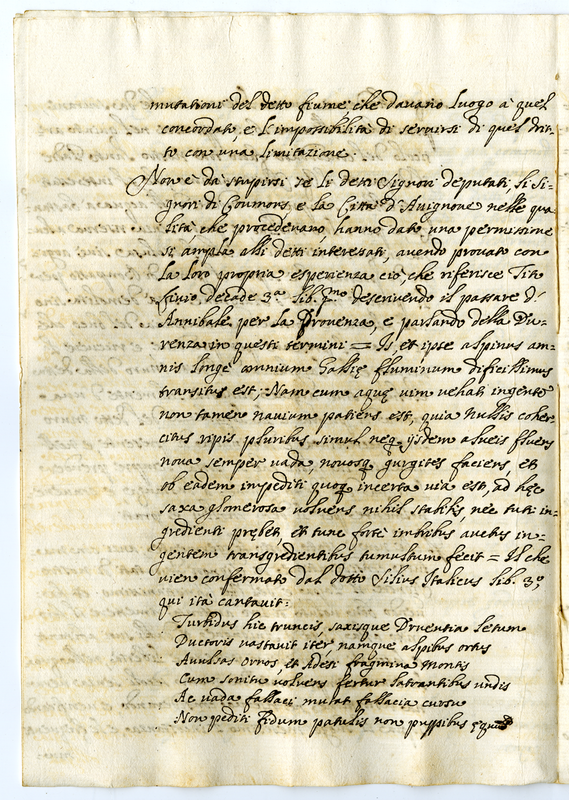 mutationi del detto fiume che davano luogo à quel
concordato, e l'impossibilità di servirsi di quel drit-
to con una limitazione.
Non è da stupirsi se li detti Signori deputati li Si-
gnori di Goumons, e la Città d'Avignone nelle qua
lità che procedevano, hanno dato una permissione
si ampla alli detti interessati, avendo provato con
la loro propria esperienza ciò, che riferisce Tito
Livio decade 3.a lib. p.mo descrivendo il passare d'
Annibale per la Provenza, e parlando della Du-
renza in questi termini = Is et ipse alpinus am-
nis longè omnium Gallię fluminum dificillimus
transitus est; Nam cum aquę vim vehat ingentē
non tamen navium patiens est, quia nullis coher-
citus ripis pluribus simul neq. ijsdem alveis fluens
nova semper vada, novosq. gurgites faciens, et
ob eadem impediti quoq. incerta via est, ad hęc
saxa glomerosa volvens nihil stabile, nec tuti in-
gredienti prębet, et tunc fortè imbribus auctus in-
gentem transgredientibus tumultum fecit = Il che
vien confermato dal dotto Silius Italicus lib. 3.o
qui ità cantavit:
Turbidus hic truncis, saxisque Druentia letum
Ductoris vastavit iter, namque alpibus ortus
Avulsas ornos, et adesi fragmina montis
Cum sonitu volvens fertur latrantibus undis
Ac vada fallaci mutat fallacia cursu
Non pediti fidum patulis non puppibus ęquum